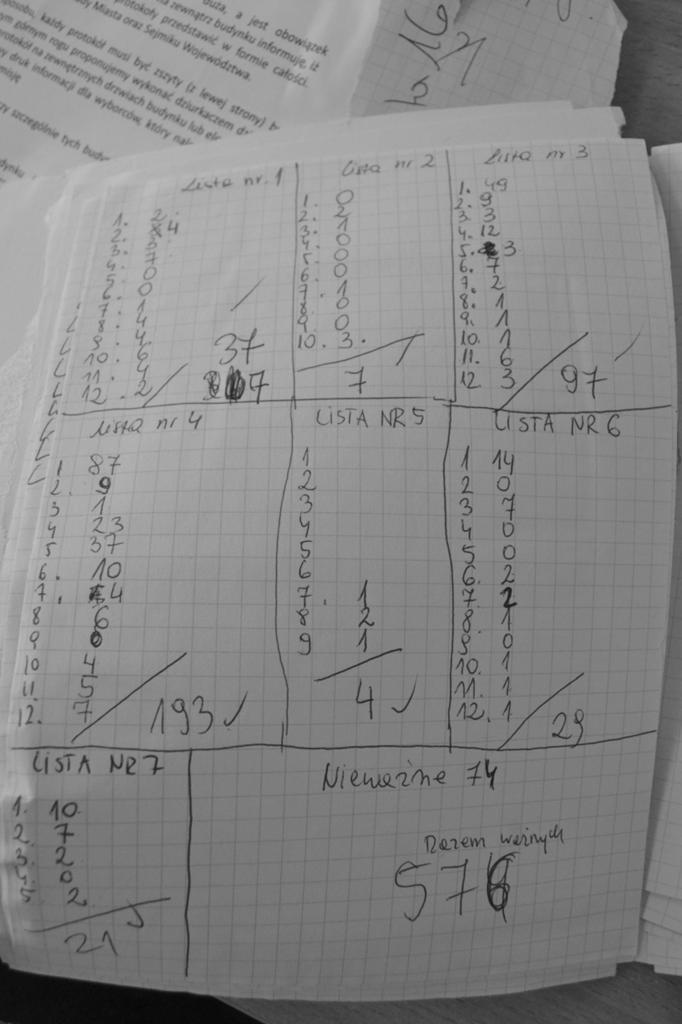 duża, a jest obowiązek
na zewnątrz budynku informuję, iż
dy Miasta oraz Sejmiku Województwa.
protokoły przedstawić w formie całości.
sposobu, każdy protokół musi być zszyty (z lewej strony)
ym górnym rogu proponujemy wykonać dziurkaczem
protokół na zewnętrznych drzwiach budynku lub
y druk informacji dla wyborców, który
zy szczególnie tych
16
Lista nr. 1
1. 2
2. 4
3. 3
4. 7
5. 0
6. 0
7. 1
8. 4
9. 4
10. 6
11. 4
12. 2
37
7
Lista nr 2
1. 0
2. 2
3. 1
4. 0
5. 0
6. 0
7. 1
8. 0
9. 0
10. 3.
7
Lista nr 3
1. 49
2. 9
3. 3
4. 12
5. 3
6. 7
7. 2
8. 1
9. 1
10. 1
11. 6
12 3
97
Lista nr 4
1 87
2. 9
3 1
4 23
5 37
6. 10
7. 4
8 6
9 0
10 4
11. 5
12. 7
193
LISTA NR 5
1
2
3
4
5
6
7. 1
8. 2
9 1
4
LISTA NR 6
1 14
2 0
3 7
4 0
5 0
6. 2
7 2
8. 1
9. 0
10. 1
11. 1
12. 1
29
LISTA NR 7
1. 10
2. 7
3. 2
4. 0
5 2
21
Nieważne 74
Razem ważnych
576